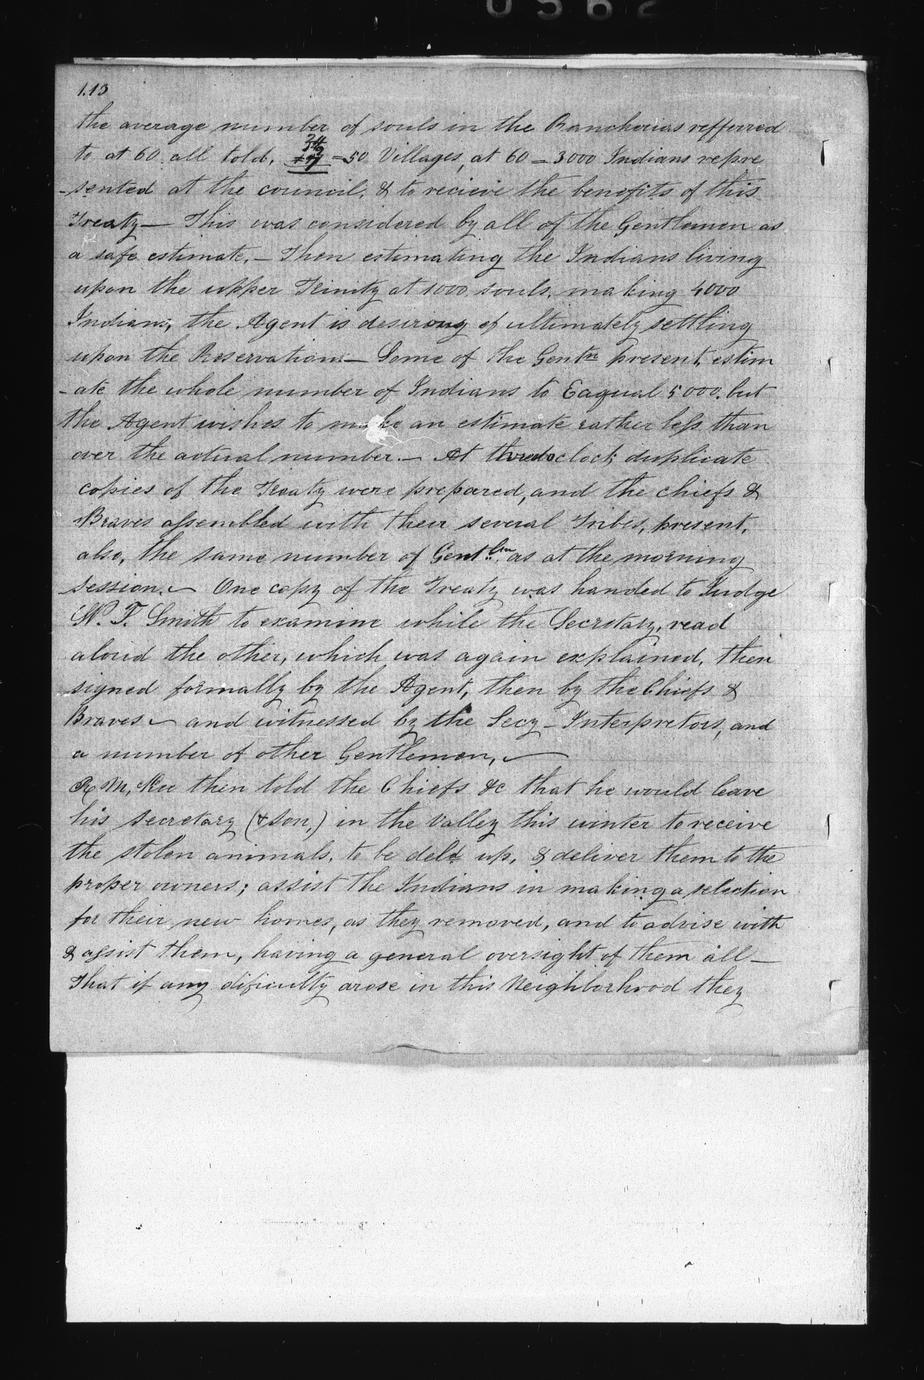 0562
113
the average number of souls in the Rancherias refferred
to at 60 all told. = 50 Villages, at 60 — 3000 Indians repre
-sented at the council, & to recieve the benefits of this
Treaty — This was considered by all of the Gentlemen as
a safe estimate. — Then estimating the Indians living
upon the upper Trinity at 1000 souls, making 4000
Indians, the Agent is desirous of ultimately settling
upon the Reservation — Some of the Gentn present, estim
-ate the whole number of Indians to Eaqual 5000. but
the Agent wishes to make an estimate rather less than
over the actual number. — At three oclock duplicate
copies of the Treaty were prepared, and the chiefs &
Braves assembled with their several Tribes, present,
also, the same number of Gentlm. as at the morning
session. — One copy of the Treaty was handed to Judge
W. T. Smith to examine while the Secretary, read
aloud the other, which was again explained, then
signed formally by the Agent, then by the Chiefs &
Braves — and witnessed by the Secy — Interpretors, and
a number of other Gentlemen, —
R. McKee then told the Chiefs &c that he would leave
his secretary (& son,) in the Valley this winter to receive
the stolen animals, to be deld up, & deliver them to the
proper owners; assist the Indians in making a selection
for their new homes, as they removed, and to advise with
& assist them, having a general oversight of them all —
That if any dificulty arose in this Neighborhood they